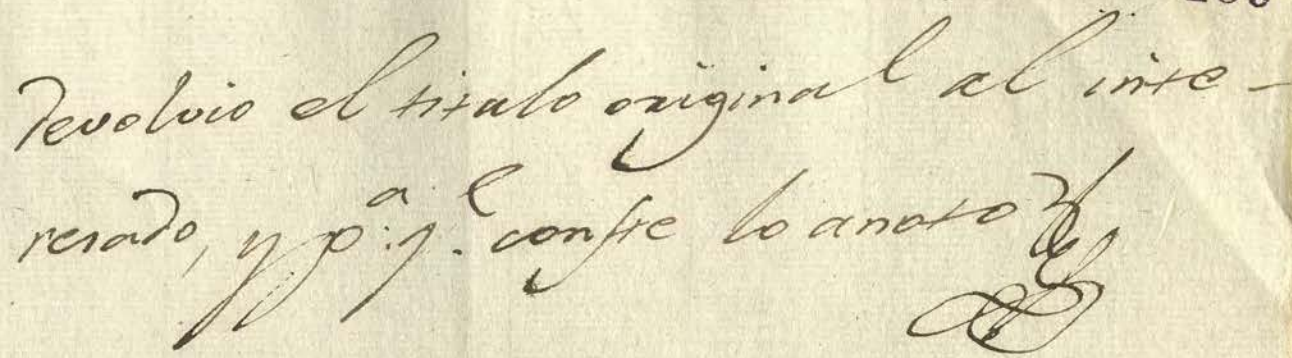 devolvio el titulo original al inte-
resado, y p.ª q.ᵉ conste lo anoto